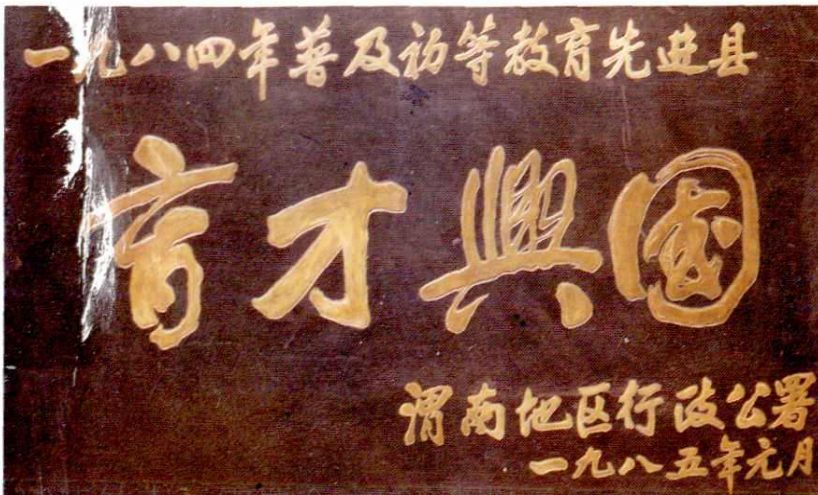 一九八四年普及初等教育先进县
育才興國
渭南地区行政公署
一九八五年元月